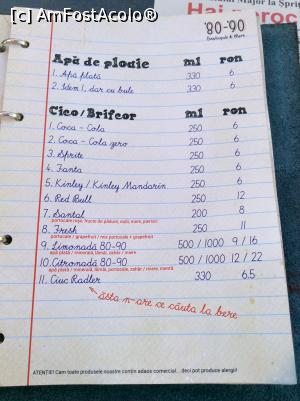 [c] AmFostAcolo®
Major la Șpriț
Hai
'80-90
Apă de ploaie ml ron
1. Apă plată 330 6
2. Idem 1, dar cu bule 330 6
Cico/Brifcor ml ron
1. Coca - Cola 250 6
2. Coca - Cola zero 250 6
3. Sprite 250 6
4. Fanta 250 6
5. Kinley / Kinley Mandarin 250 6
6. Red Bull 250 12
7. Santal 200 8
portocare roșe, fructe de pădure, nuci, mere, piersici
8. Fresh 250 11
portocare / grapefruit / mix portocale + grapefruit
9. Limonadă 80-90 500 / 1000 9 / 16
apă plată / minerală, lămâi, zahăr / miere, mentă
10. Citronadă 80-90 500 / 1000 12 / 22
apă plată / minerală, lămâi, portocale, zahăr / miere, mentă
11. Ciuc Radler 330 6.5
ăsta n-are ce căuta la bere
ATENȚIE! Cam toate produsele noastre conțin adaos comercial... deci pot produce alergii!